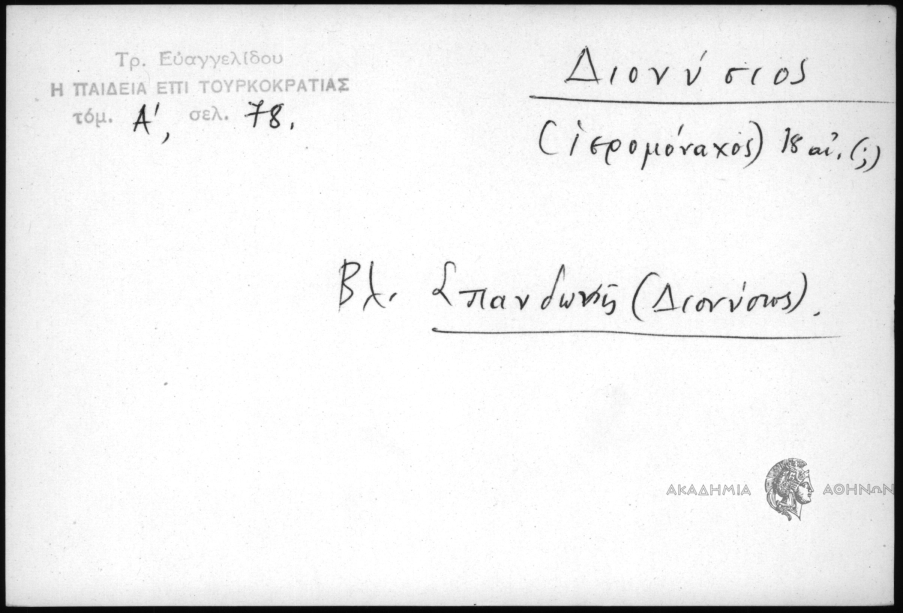 Τρ. Εὐαγγελίδου
Η ΠΑΙΔΕΙΑ ΕΠΙ ΤΟΥΡΚΟΚΡΑΤΙΑΣ
τόμ. Α', σελ. 78.
Διονύσιος
(ἱερομόναχος) 18 αἰ. (;)
Βλ. Σπανδωνῆς (Διονύσιος).
ΑΚΑΔΗΜΙΑ ΑΘΗΝΩΝ